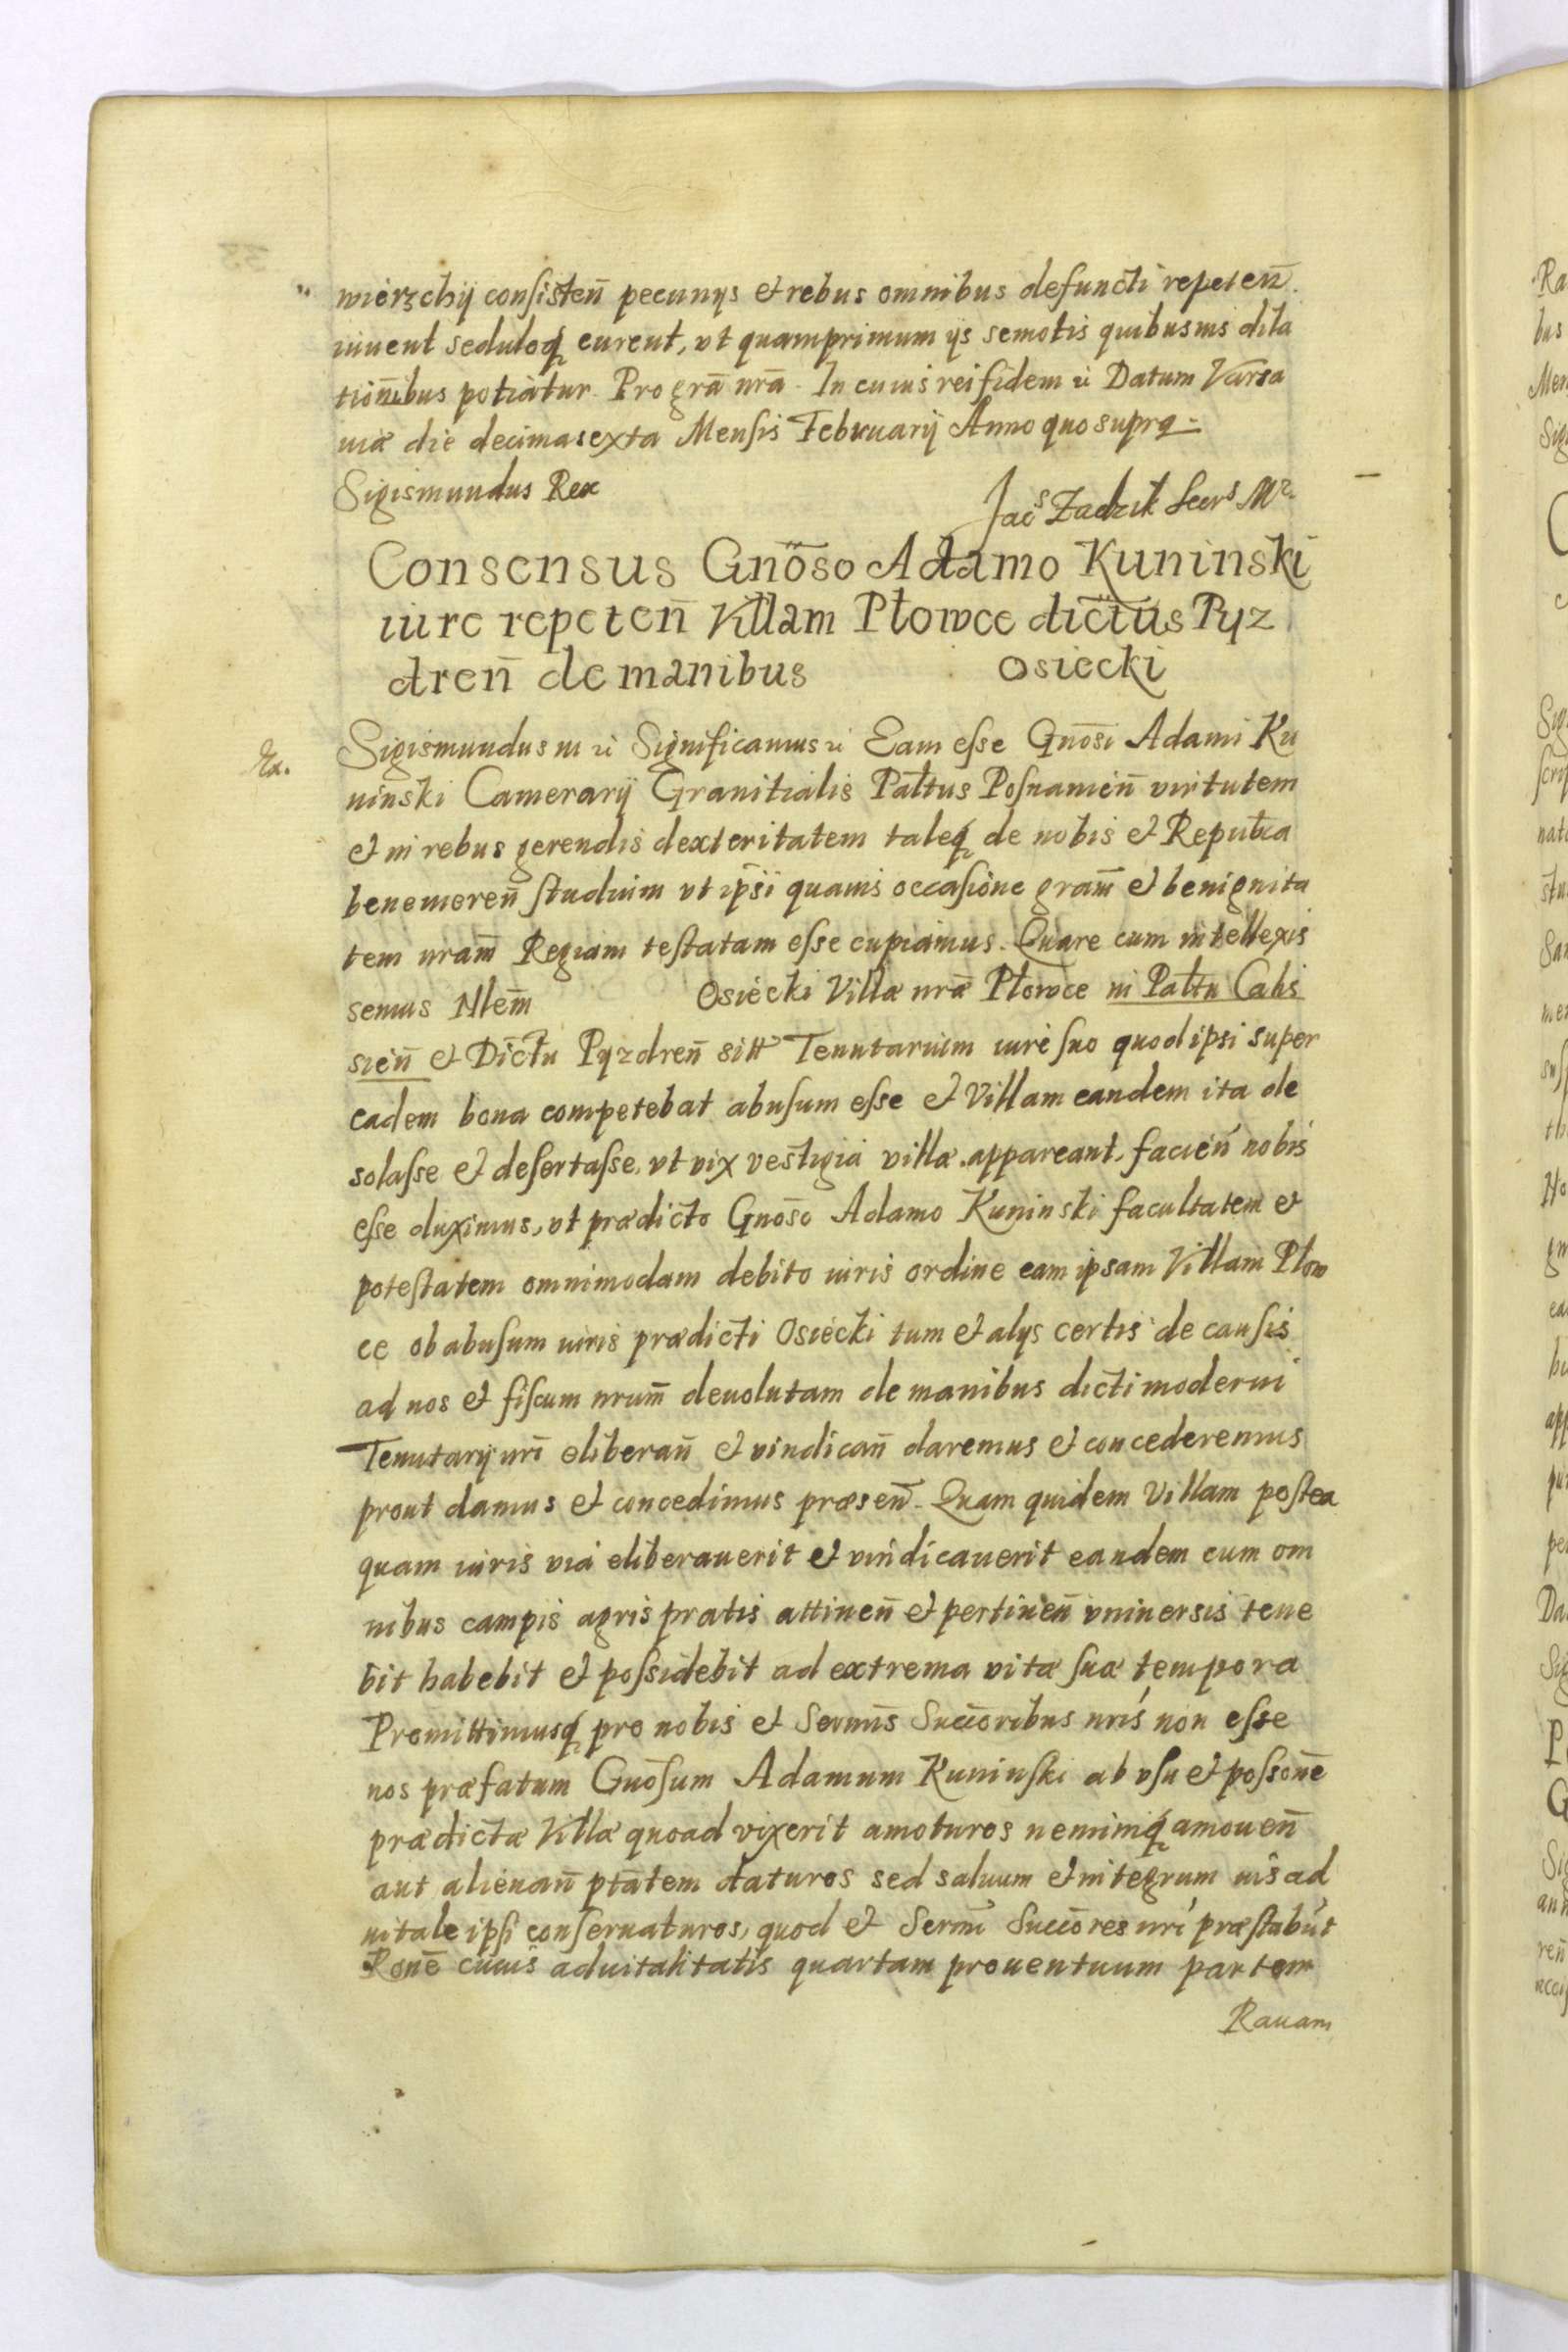 wierzchij consisten̄ pecunijs et rebus omnibus defuncti repeten̄.
iuuent seduloq; curent, vt quamprimum ijs semotis quibusuis dila
tion̄ibus potiatur. Pro grā nrā. In cuius rei fidem &c Datum Varsa
uiæ die decimasexta Mensis Februarij Anno quo supra.
Sigismundus Rex
Jacs Zadzik Secrs Mr.
Consensus Gnōso Adamo Kuninski
iure repeten̄ Villam Płowce dictus Pyz
dren̄ de manibus Osiecki
Sigismundus III &c Significamus &c Eam esse Gnōsi Adami Ku
ninski Camerarij Granitialis Pałtus Posnanien̄ virtutem
et in rebus gerendis dexteritatem taleq; de nobis et Republca
benemeren̄ studium vt ipsi quauis occasione gram̄ et benignita
tem nram̄ Regiam testatam esse cupiamus. Quare cum intellexis
semus Nlem̄ Osiecki Villæ nræ Płowce in Pałtu Calis
sien̄ et Dictu Pyzdren̄ sitt Tenutarium iure suo quod ipsi super
eadem bona competebat abusum esse et Villam eandem ita de
solasse et desertasse, vt vix vestigia villæ appareant, facien̄ nobis
esse duximus, vt prædicto Gnōso Adamo Kuninski facultatem et
potestatem omnimodam debito iuris ordine eam ipsam Villam Płow
ce ob abusum iuris prædicti Osiecki tum et alijs certis de causis
ad nos et fiscum nrum̄ deuolutam de manibus dicti moderni
Tenutarij nri̅ eliberan̄ et vindican̄ daremus et concederemus
prout damus et concedimus præsen̄. Quam quidem Villam postea
quam iuris via eliberauerit et vindicauerit eandem cum om
nibus campis agris pratis attinen̄ et pertinen̄ vniuersis tene
bit habebit et possidebit ad extrema vitæ suæ tempora
Promittimusq; pro nobis et Sermis Succoribus nris non esse
nos præfatum Gnōsum Adamum Kuninski ab vsu et possone̅
prædictæ Villæ quoad vixerit amoturos neminiq; amouen̄
aut alienan̄ ptātem daturos sed saluum et integrum ius ad
uitale ipsi conseruaturos, quod et Sermi Succores nri præstabūt
Rone̅ cuius aduitalitatis quartam prouentuum partem
Rauam